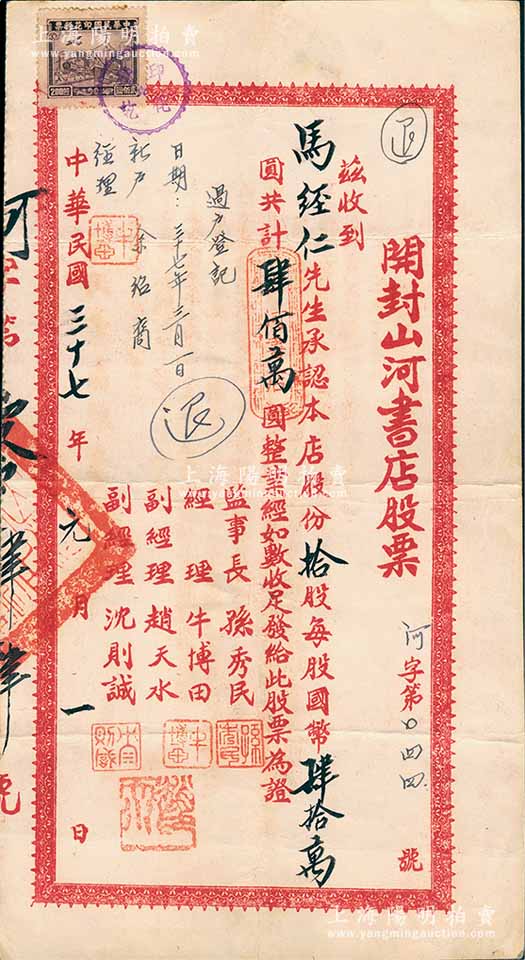 開封山河書店股票
河字第〇四四號
退
茲收到
馬經仁先生承認本店股份拾股每股國幣肆拾萬
圓共計肆佰萬圓整業經如數收足發給此股票為證
監事長 孫秀民
經理 牛博田
副經理 趙天水
副經理 沈則誠
過戶登記
日期：三十七年三月一日
新戶
經理
退
中華民國三十七年元月一日
中華民國印花稅票
200圓
上海陽明拍賣
www.yangmingauction.com
上海陽明拍賣
www.yangmingauction.com
上海陽明拍賣
www.yangmingauction.com